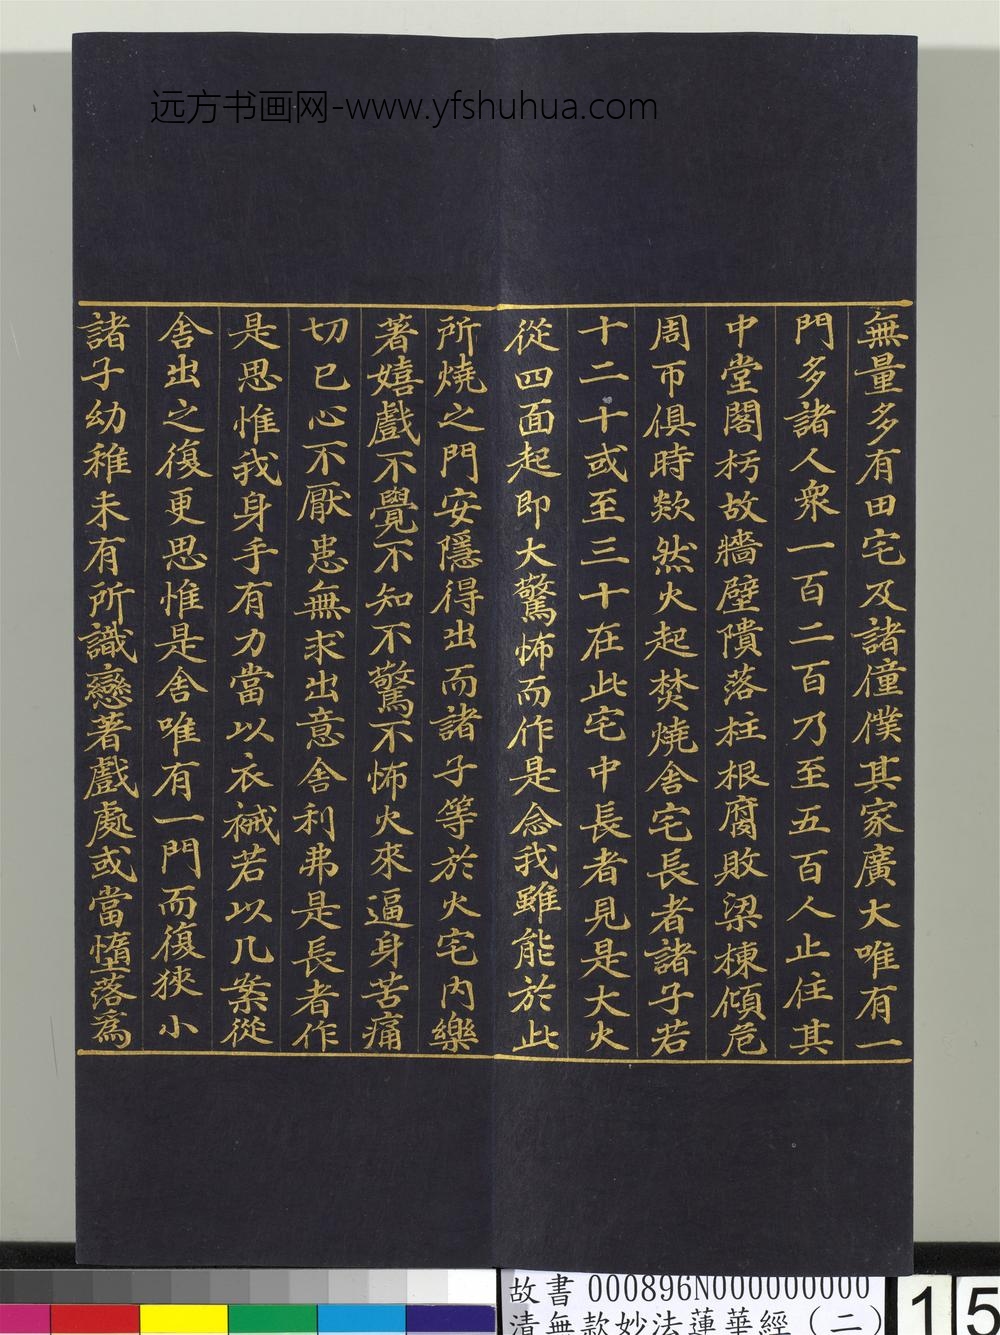 远方书画网-www.yfshuhua.com
無量多有田宅及諸僮僕其家廣大唯有一
門多諸人衆一百二百乃至五百人止住其
中堂閣朽故牆壁隤落柱根腐敗梁棟傾危
周帀俱時欻然火起焚燒舍宅長者諸子若
十二十或至三十在此宅中長者見是大火
從四面起即大驚怖而作是念我雖能於此
所燒之門安隱得出而諸子等於火宅內樂
著嬉戲不覺不知不驚不怖火來逼身苦痛
切已心不厭患無求出意舍利弗是長者作
是思惟我身手有力當以衣裓若以几案從
舍出之復更思惟是舍唯有一門而復狹小
諸子幼稚未有所識戀著戲處或當墮落爲
故書 000896N000000000
清無款妙法蓮華經（二）
15